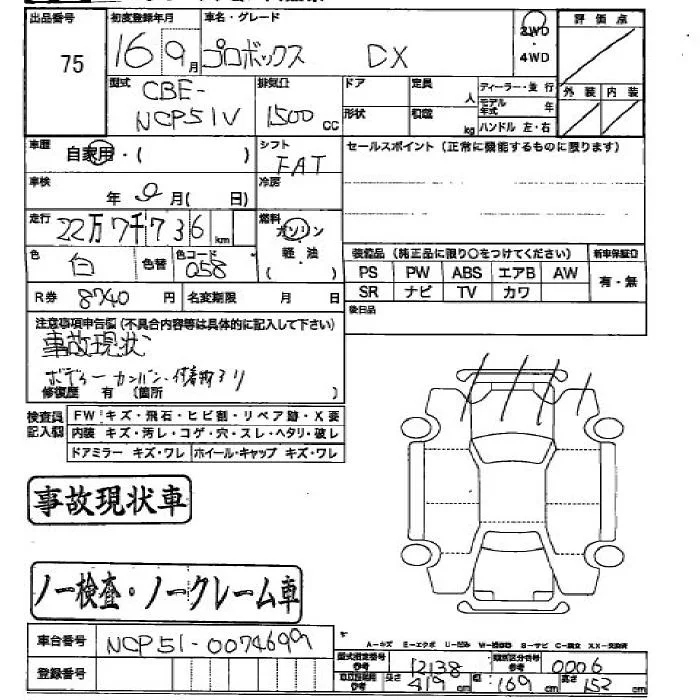 出品番号 初度登録年月 車名・グレード 2WD 評価点
75 16 9月 プロボックス DX 4WD
型式 排気量 ドア 定員 人 ディーラー・並行 外装 内装
CBE-
NCP51V 1500cc 形状 積載 kg モデル年式 年
ハンドル 左・右
車歴 自家用・( ) シフト FAT セールスポイント(正常に機能するものに限ります)
車検 年 月( 日) 冷房
走行 22万7千736km 燃料 ガソリン
軽・油
( )
色 白 色替 色コード 058 装備品(純正品に限り○をつけてください) 新車保証書
PS PW ABS エアB AW 有・無
R券 8740円 名変期限 月 日 SR ナビ TV カワ
後日品
注意事項申告欄(不具合内容等は具体的に記入して下さい)
事故現状
ボディーカンバン・付着物アリ
修復歴 有 (箇所 )
検査員記入欄 FW キズ・飛石・ヒビ割・リペア跡・X要
内装 キズ・汚レ・コゲ・穴・スレ・ヘタリ・破レ
ドアミラー キズ・ワレ ホイール・キャップ キズ・ワレ
事故現状車
ノー検査・ノークレーム車
車台番号 NCP51-0074699
A-キズ E-エクボ U-凹み S-サビ
型式指定番号 参考 12138 類別区分番号 参考 0006
登録番号 参考 長さ 419cm 幅 169cm 高さ 152cm